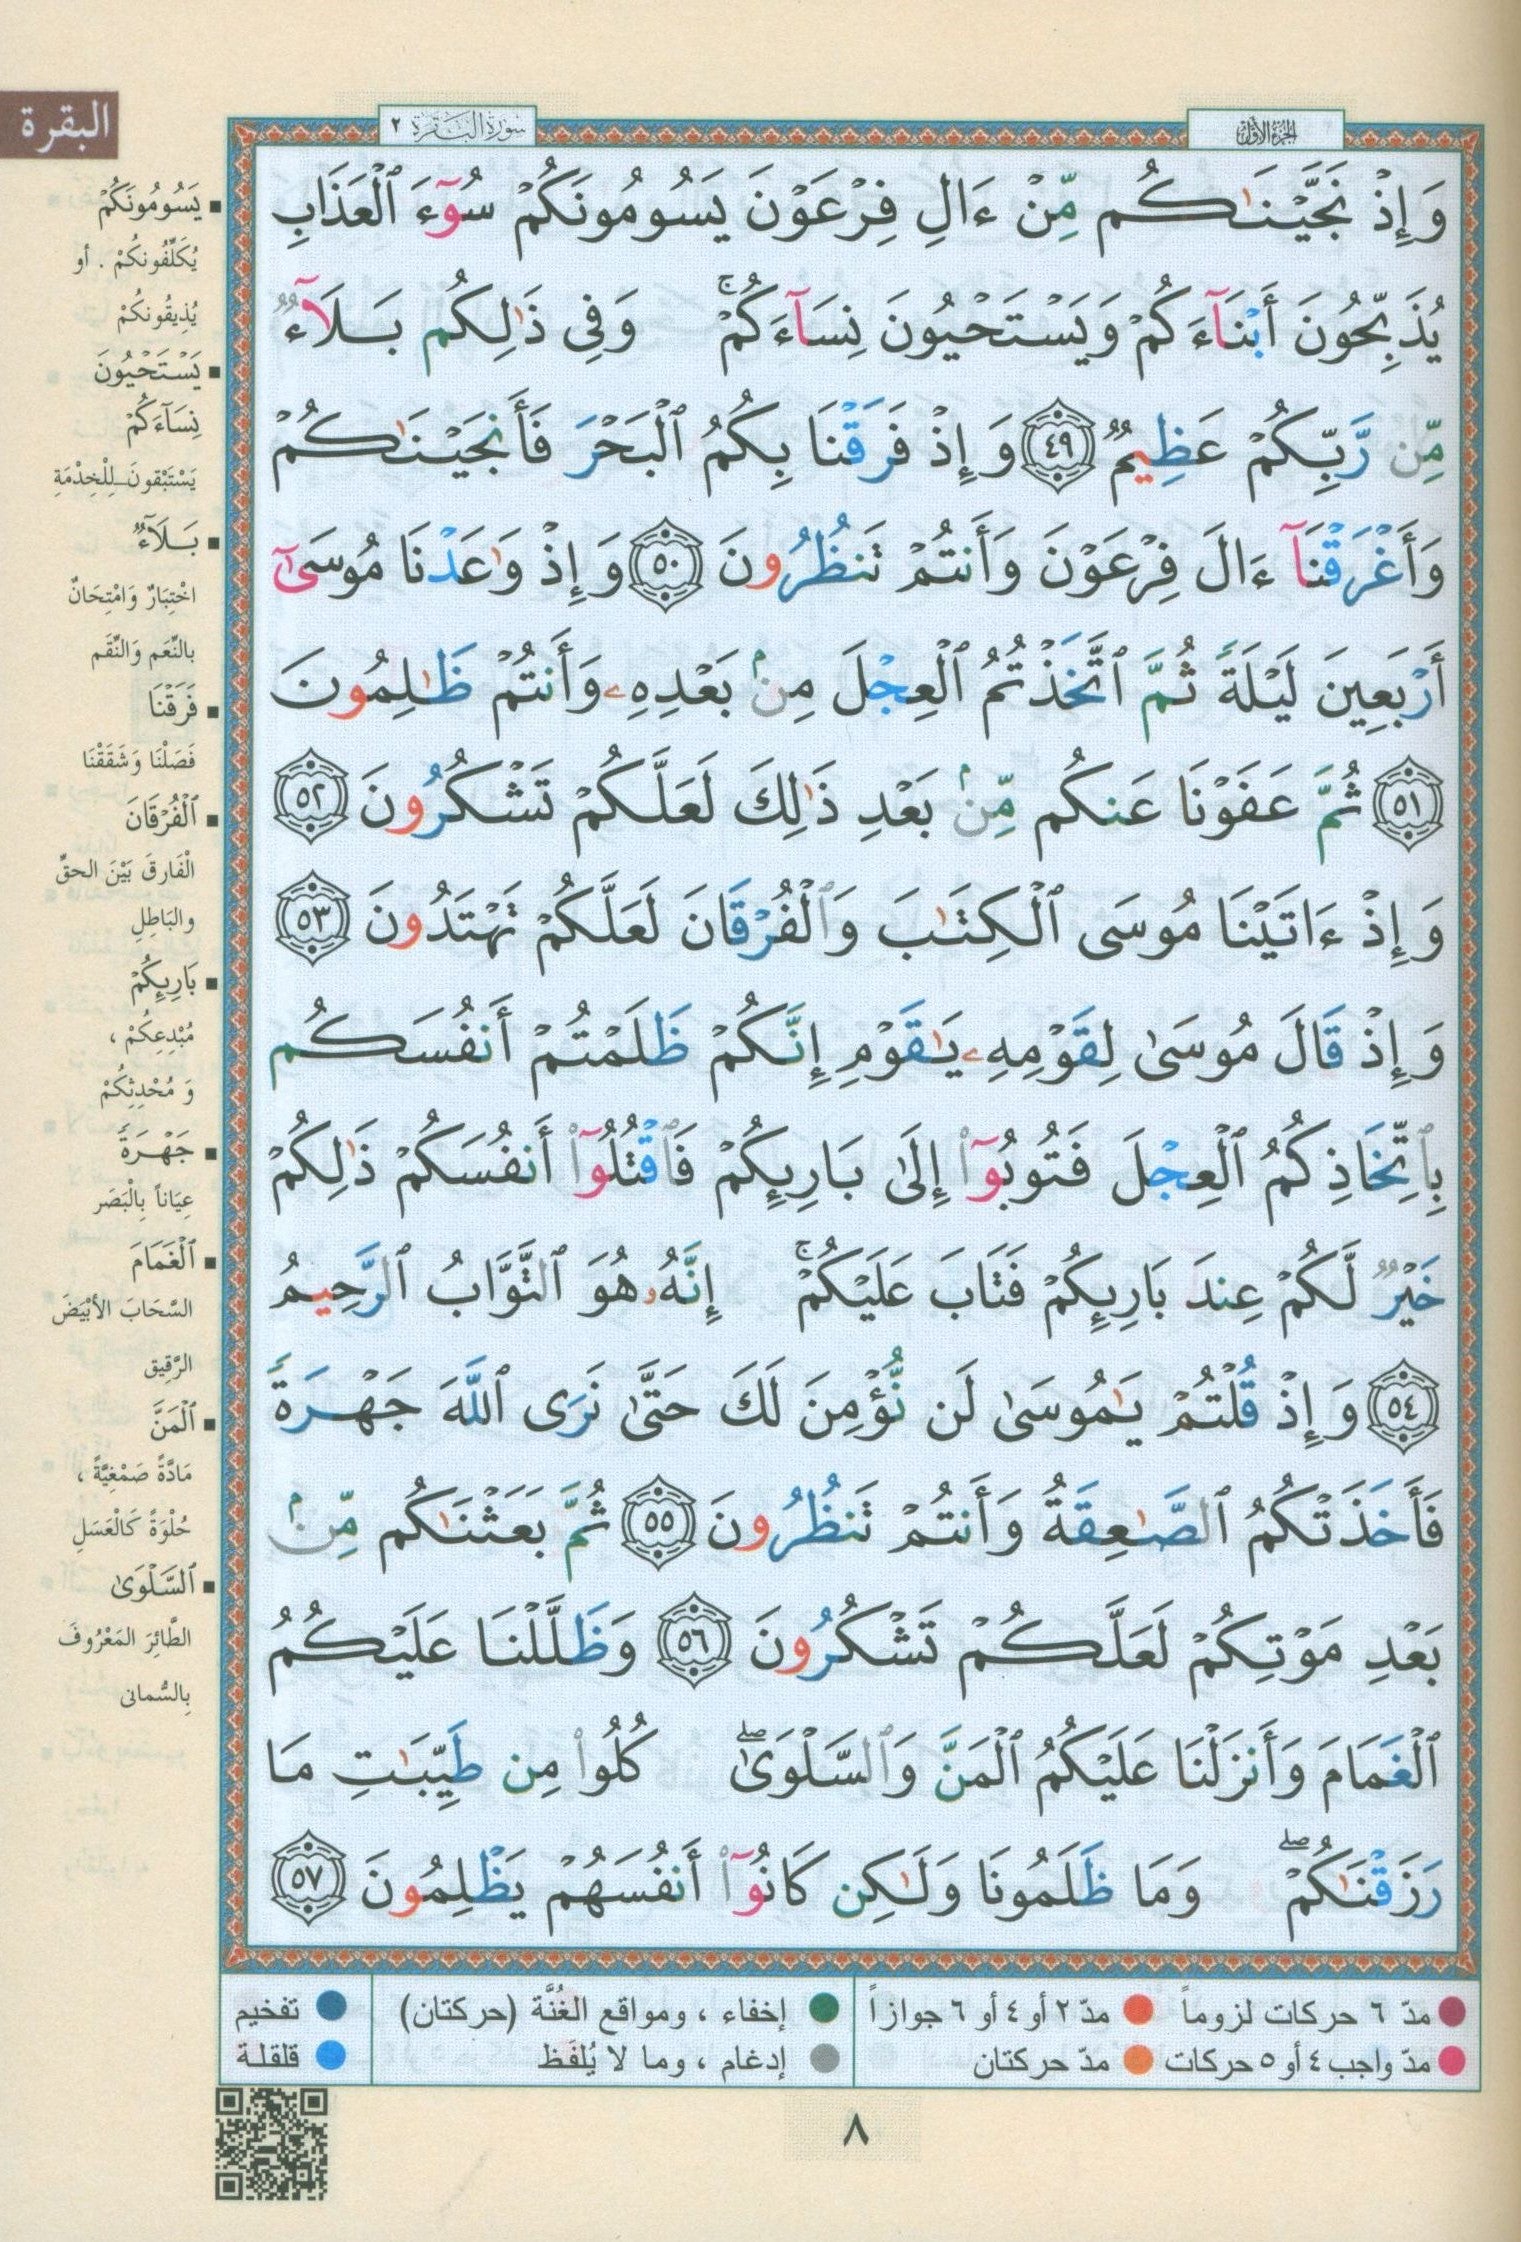 الجزء الأول
سورة البقرة ٢
البقرة
وَإِذْ نَجَّيْنَٰكُم مِّنْ ءَالِ فِرْعَوْنَ يَسُومُونَكُمْ سُوٓءَ ٱلْعَذَابِ
يُذَبِّحُونَ أَبْنَآءَكُمْ وَيَسْتَحْيُونَ نِسَآءَكُمْ ۚ وَفِى ذَٰلِكُم بَلَآءٌ
مِّن رَّبِّكُمْ عَظِيمٌ ٤٩ وَإِذْ فَرَقْنَا بِكُمُ ٱلْبَحْرَ فَأَنجَيْنَٰكُمْ
وَأَغْرَقْنَآ ءَالَ فِرْعَوْنَ وَأَنتُمْ تَنظُرُونَ ٥٠ وَإِذْ وَٰعَدْنَا مُوسَىٰٓ
أَرْبَعِينَ لَيْلَةً ثُمَّ ٱتَّخَذْتُمُ ٱلْعِجْلَ مِنۢ بَعْدِهِۦ وَأَنتُمْ ظَٰلِمُونَ
٥١ ثُمَّ عَفَوْنَا عَنكُم مِّنۢ بَعْدِ ذَٰلِكَ لَعَلَّكُمْ تَشْكُرُونَ ٥٢
وَإِذْ ءَاتَيْنَا مُوسَى ٱلْكِتَٰبَ وَٱلْفُرْقَانَ لَعَلَّكُمْ تَهْتَدُونَ ٥٣
وَإِذْ قَالَ مُوسَىٰ لِقَوْمِهِۦ يَٰقَوْمِ إِنَّكُمْ ظَلَمْتُمْ أَنفُسَكُم
بِٱتِّخَاذِكُمُ ٱلْعِجْلَ فَتُوبُوٓا۟ إِلَىٰ بَارِئِكُمْ فَٱقْتُلُوٓا۟ أَنفُسَكُمْ ذَٰلِكُمْ
خَيْرٌ لَّكُمْ عِندَ بَارِئِكُمْ فَتَابَ عَلَيْكُمْ ۚ إِنَّهُۥ هُوَ ٱلتَّوَّابُ ٱلرَّحِيمُ
٥٤ وَإِذْ قُلْتُمْ يَٰمُوسَىٰ لَن نُّؤْمِنَ لَكَ حَتَّىٰ نَرَى ٱللَّهَ جَهْرَةً
فَأَخَذَتْكُمُ ٱلصَّٰعِقَةُ وَأَنتُمْ تَنظُرُونَ ٥٥ ثُمَّ بَعَثْنَٰكُم مِّنۢ
بَعْدِ مَوْتِكُمْ لَعَلَّكُمْ تَشْكُرُونَ ٥٦ وَظَلَّلْنَا عَلَيْكُمُ
ٱلْغَمَامَ وَأَنزَلْنَا عَلَيْكُمُ ٱلْمَنَّ وَٱلسَّلْوَىٰ ۖ كُلُوا۟ مِن طَيِّبَٰتِ مَا
رَزَقْنَٰكُمْ ۖ وَمَا ظَلَمُونَا وَلَٰكِن كَانُوٓا۟ أَنفُسَهُمْ يَظْلِمُونَ ٥٧
▪ يَسُومُونَكُمْ
يُكَلِّفُونَكُمْ . أو
يُذِيقُونَكُمْ
▪ يَسْتَحْيُونَ
نِسَآءَكُمْ
يَسْتَبْقونَ لِلْخِدْمَةِ
▪ بَلَآءٌ
اخْتِبَارٌ وَامْتِحَانٌ
بالنِّعَم وَالنِّقَم
▪ فَرَقْنَا
فَصَلْنَا وَشَقَقْنَا
▪ ٱلْفُرْقَانَ
الْفَارِقَ بَيْنَ الحقِّ
والبَاطِلِ
▪ بَارِئِكُمْ
مُبْدِعِكُمْ ،
وَ مُحْدِثِكُمْ
▪ جَهْرَةً
عِيَاناً بِالْبَصَر
▪ ٱلْغَمَامَ
السَّحَابَ الأَبْيَضَ
الرَّقِيق
▪ ٱلْمَنَّ
مَادَّةً صَمْغِيَّةً ،
حُلْوَةً كَالْعَسَلِ
▪ ٱلسَّلْوَىٰ
الطَّائِرَ المَعْرُوفَ
بِالسُّمانى
مدّ ٦ حركات لزوماً ● مدّ ٢ أو ٤ أو ٦ جوازاً ● إخفاء ، ومواقع الغُنَّة (حركتان) ● تفخيم
مدّ واجب ٤ أو ٥ حركات ● مدّ حركتان ● إدغام ، وما لا يُلفَظ ● قلقلة
٨